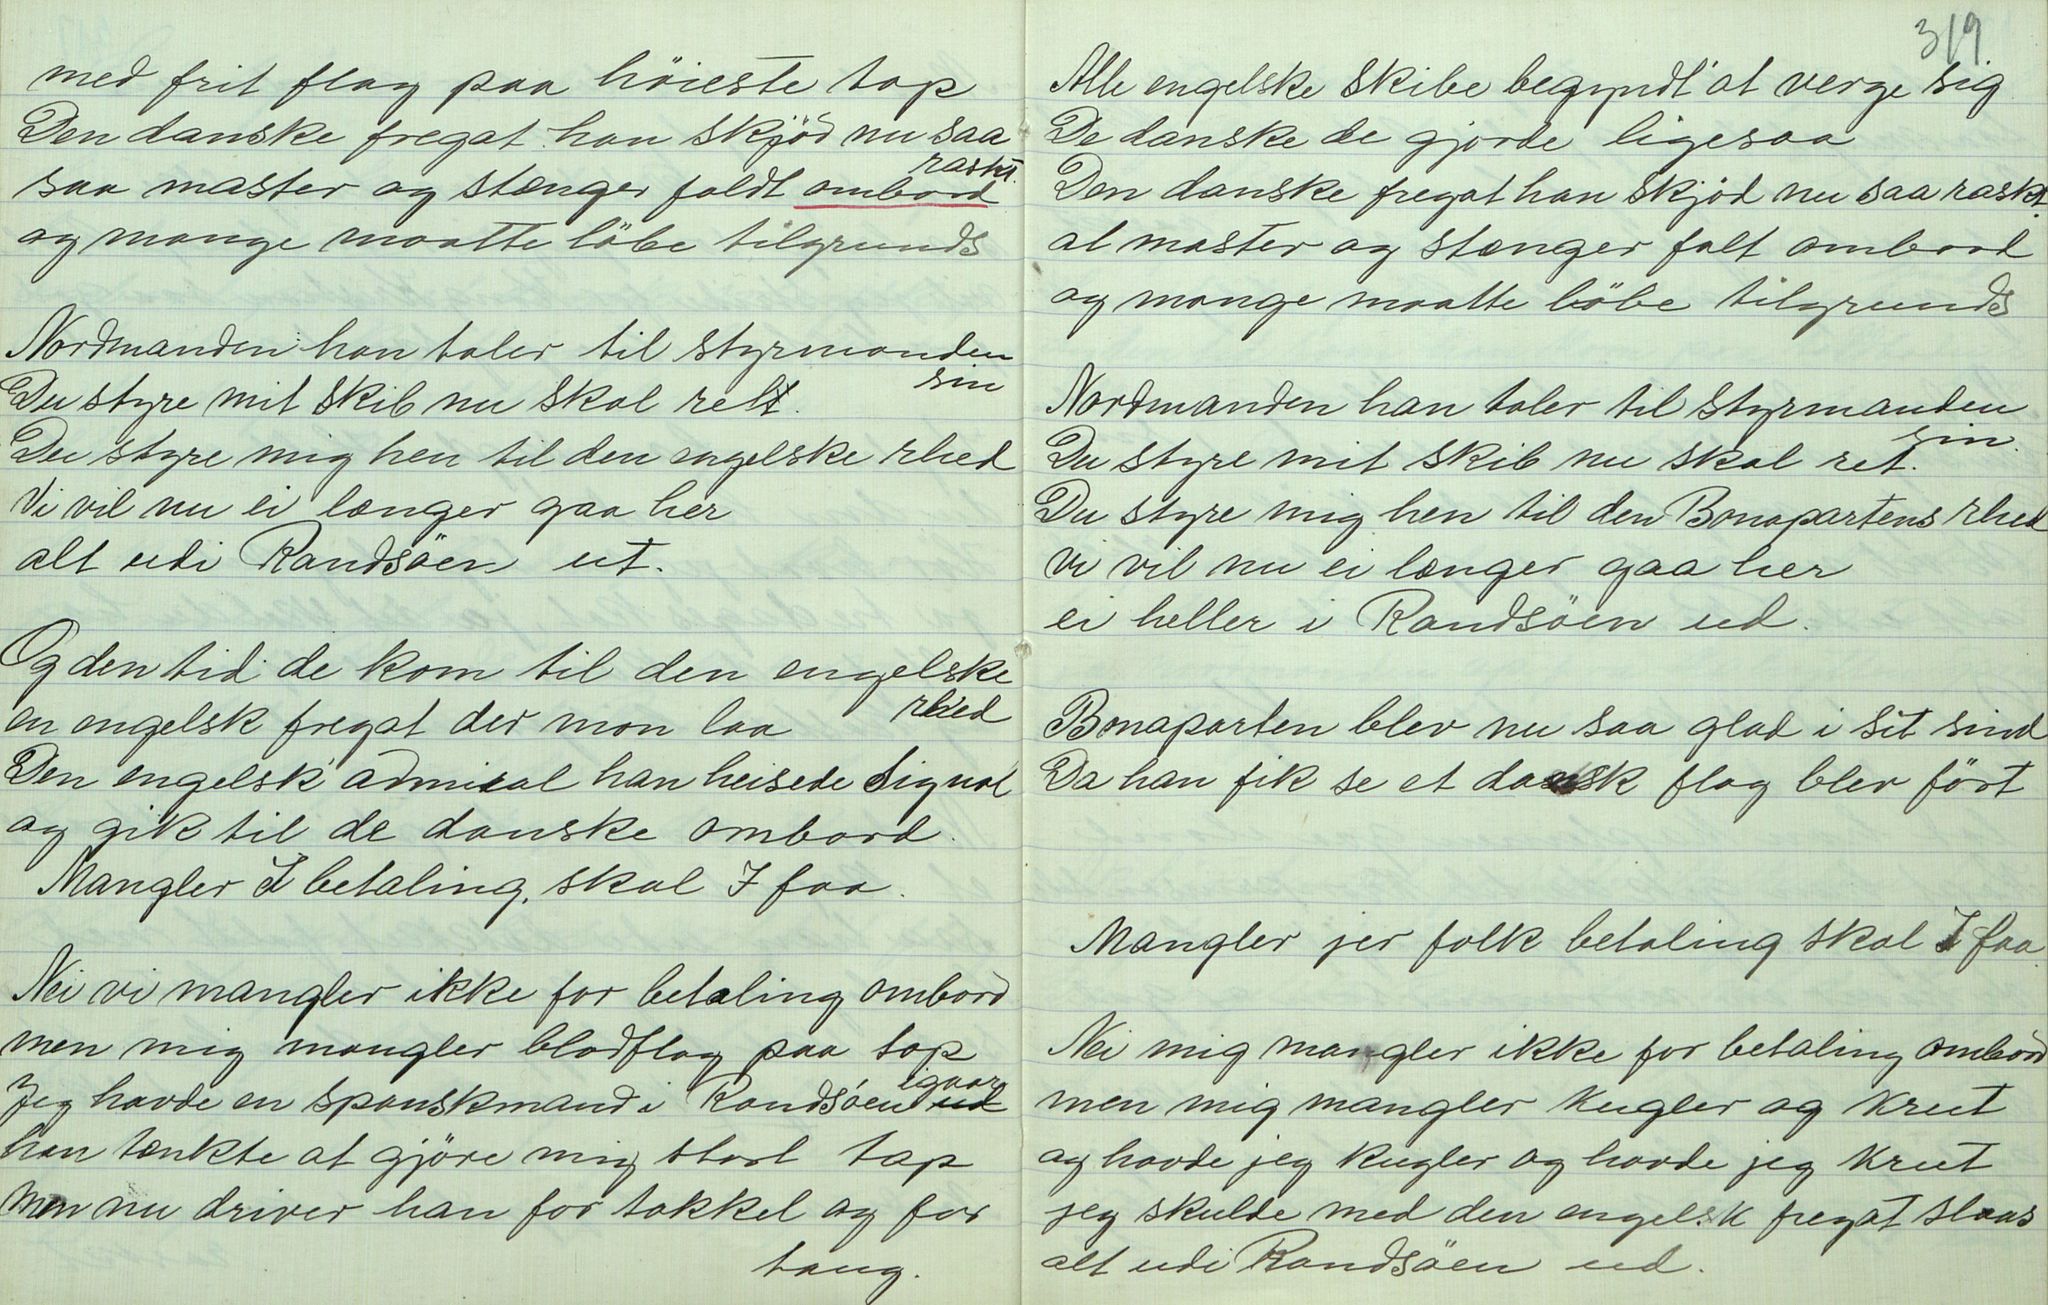 med frit flag paa höieste top
Den danske fregat han skjöd nu saa
raskt.
saa master og stænger faldt ombord
og mange maatte löbe tilgrunds
Nordmanden han taler til styrmanden
sin
Du styre mit skib nu skal ret.
Du styre mig hen til den engelske rhed
Vi vil nu ei længer gaa her
alt udi Randsöen ut.
Og den tid de kom til den engelske
rhed
en engelsk fregat der mon laa
Den engelsk' admiral han heisede signal
og gik til de danske ombord.
Mangler I betaling, skal I faa.
Nei vi mangler ikke for betaling ombord
men mig mangler blodflag paa top
Jeg havde en spanskmand i Randsöen ud
igaar
han tænkte at gjöre mig stort tap
Men nu driver han for takkel og for
taug.
319
Alle engelske skibe begyndt' at verge sig
De danske de gjorde ligesaa
Den danske fregat han skjöd nu saa raskt.
at master og stænger falt ombord
og mange maatte löbe tilgrunds
Nordmanden han taler til styrmanden
sin.
Du styre mit skib nu skal ret.
Du styre mig hen til den Bonapartens rhed
vi vil nu ei længer gaa her
ei heller i Randsöen ud.
Bonaparten blev nu saa glad i sit sind
Da han fik se et dansk flag blev fört
Mangler jer folk betaling skal I faa.
Nei mig mangler ikke for betaling ombord
men mig mangler kugler og krut
og havde jeg kugler og havde jeg krut
jeg skulde med den engelsk fregat slaas
alt udi Randsöen ud.